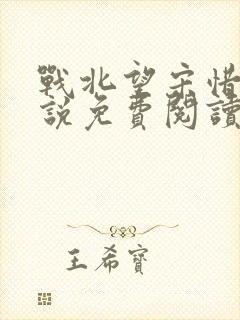 戰北望宋惜
說免費閱讀
王希寶